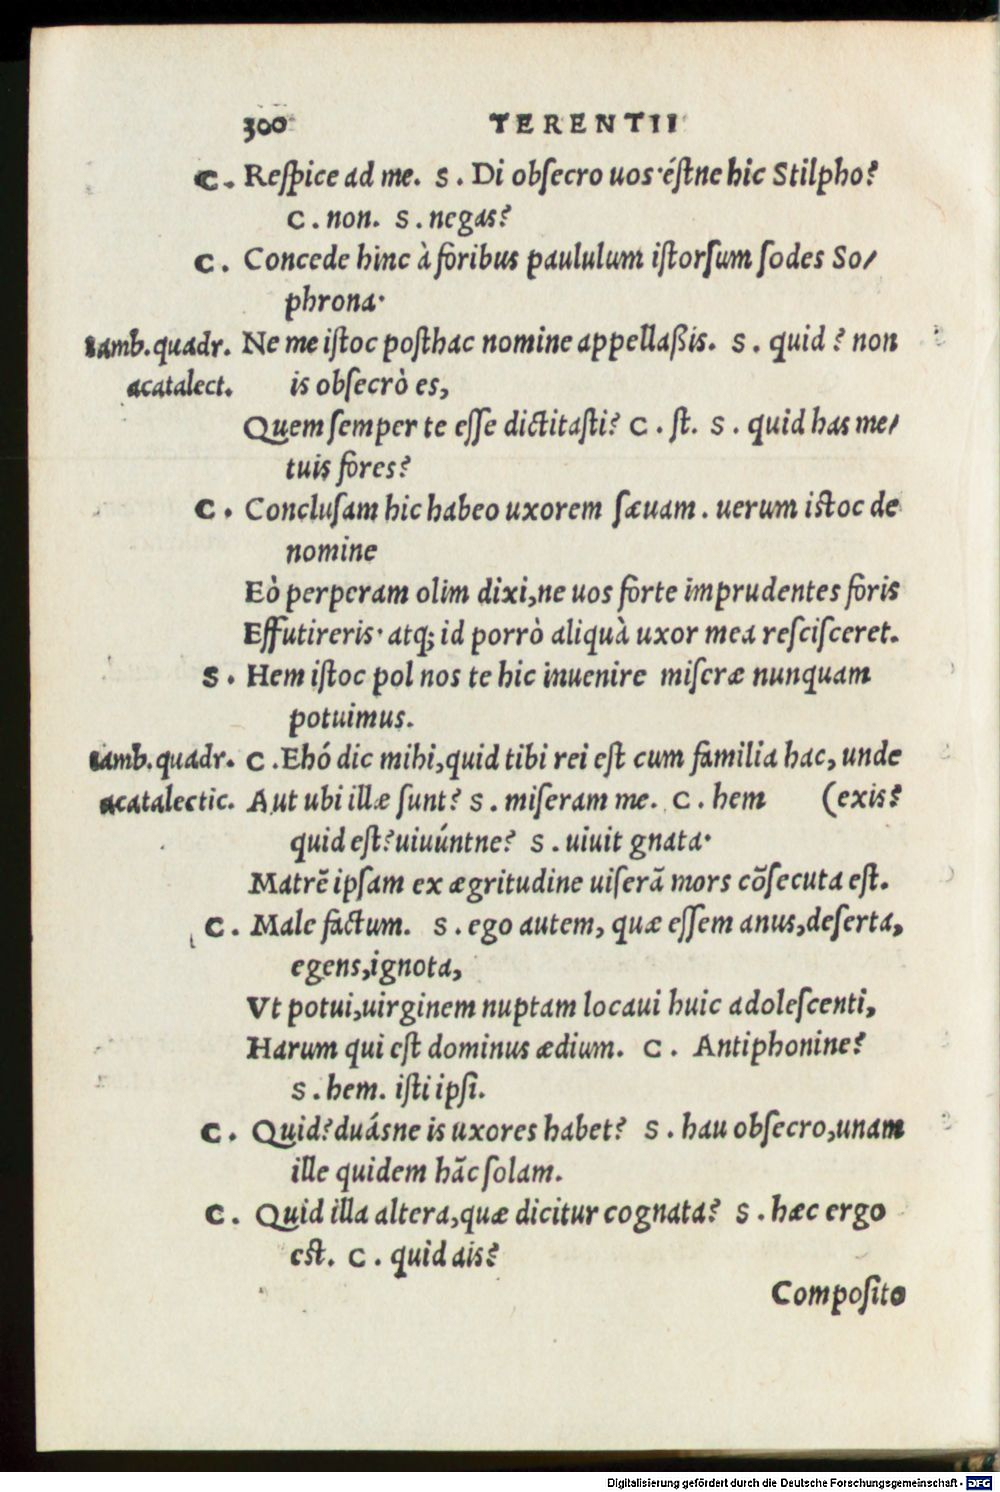 300 TERENTII
C. Respice ad me. S. Di obsecro uos·éstne hic Stilpho?
C. non. S. negas?
C. Concede hinc à foribus paululum istorsum sodes So/
phrona·
Iamb. quadr. Ne me istoc posthac nomine appellaßis. S. quid? non
acatalect. is obsecrò es,
Quem semper te esse dictitasti? C. st. S. quid has me/
tuis fores?
C. Conclusam hic habeo uxorem sæuam. uerum istoc de
nomine
Eò perperam olim dixi, ne uos forte imprudentes foris
Effutireris· atq; id porrò aliquà uxor mea rescisceret.
S. Hem istoc pol nos te hic inuenire miseræ nunquam
potuimus.
Iamb. quadr. C. Ehó dic mihi, quid tibi rei est cum familia hac, unde
acatalectic. Aut ubi illæ sunt? S. miseram me. C. hem (exis?
quid est? uiuúntne? S. uiuit gnata·
Matrē ipsam ex ægritudine uiserā mors cōsecuta est.
C. Male factum. S. ego autem, quæ essem anus, deserta,
egens, ignota,
Vt potui, uirginem nuptam locaui huic adolescenti,
Harum qui est dominus ædium. C. Antiphonine?
S. hem. isti ipsi.
C. Quid? duásne is uxores habet? S. hau obsecro, unam
ille quidem hāc solam.
C. Quid illa altera, quæ dicitur cognata? S. hæc ergo
est. C. quid ais?
Composito
Digitalisierung gefördert durch die Deutsche Forschungsgemeinschaft - DFG